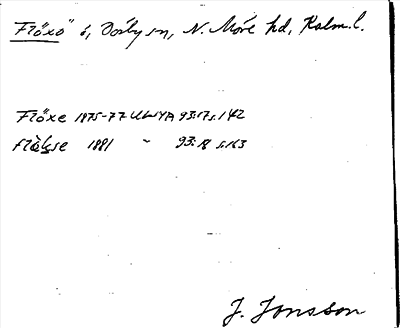 Flöxö ö, Dörby sn, N. Möre hd, Kalm. l.
Flöxe 1875-77 ULWYA 93:17 s. 142
Flökse 1881 " 93:18 s. 163
J. Jonsson